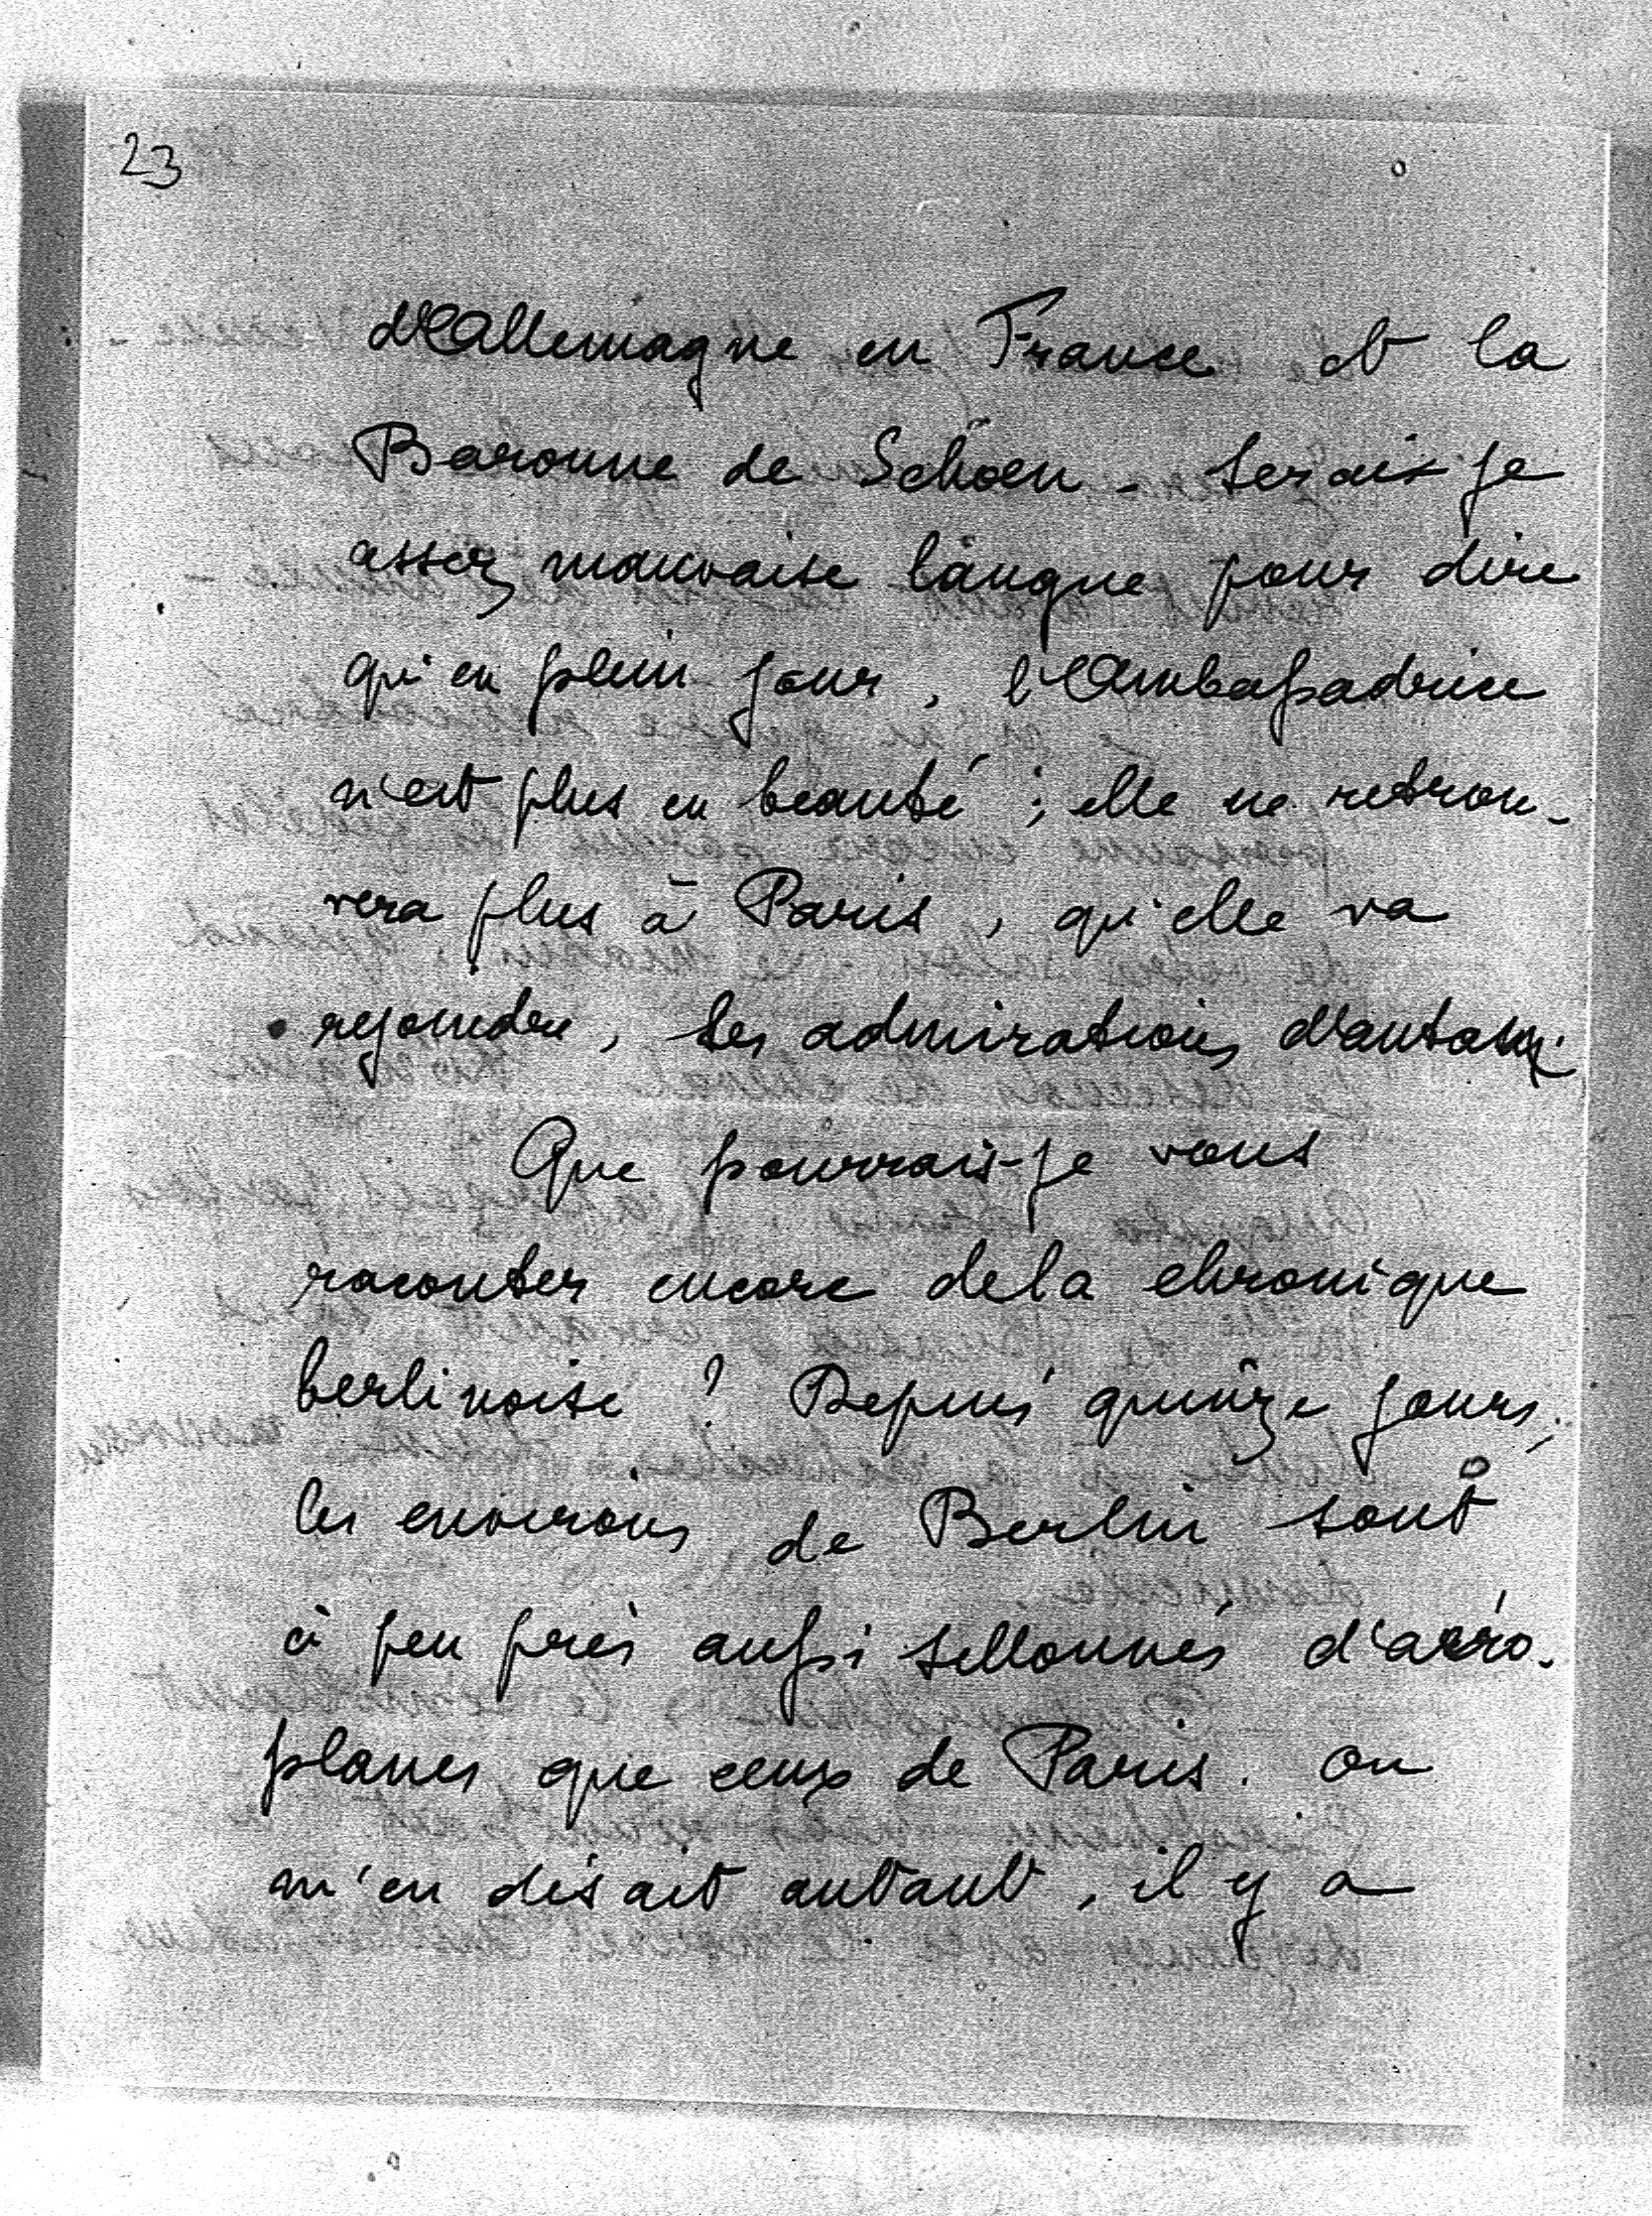 23
d'Allemagne en France et la
Baronne de Schoen - serais-je
assez mauvaise langue pour dire
qu'en plein jour, l'Ambassadrice
n'est plus en beauté ; elle ne retrou-
vera plus à Paris, qu'elle va
rejoindre, les admirations d'autan.
Que pourrais-je vous
raconter encore de la chronique
berlinoise ? Depuis quinze jours,
les environs de Berlin sont
à peu près aussi sillonnés d'aéro-
planes que ceux de Paris. On
m'en disait autant, il y a